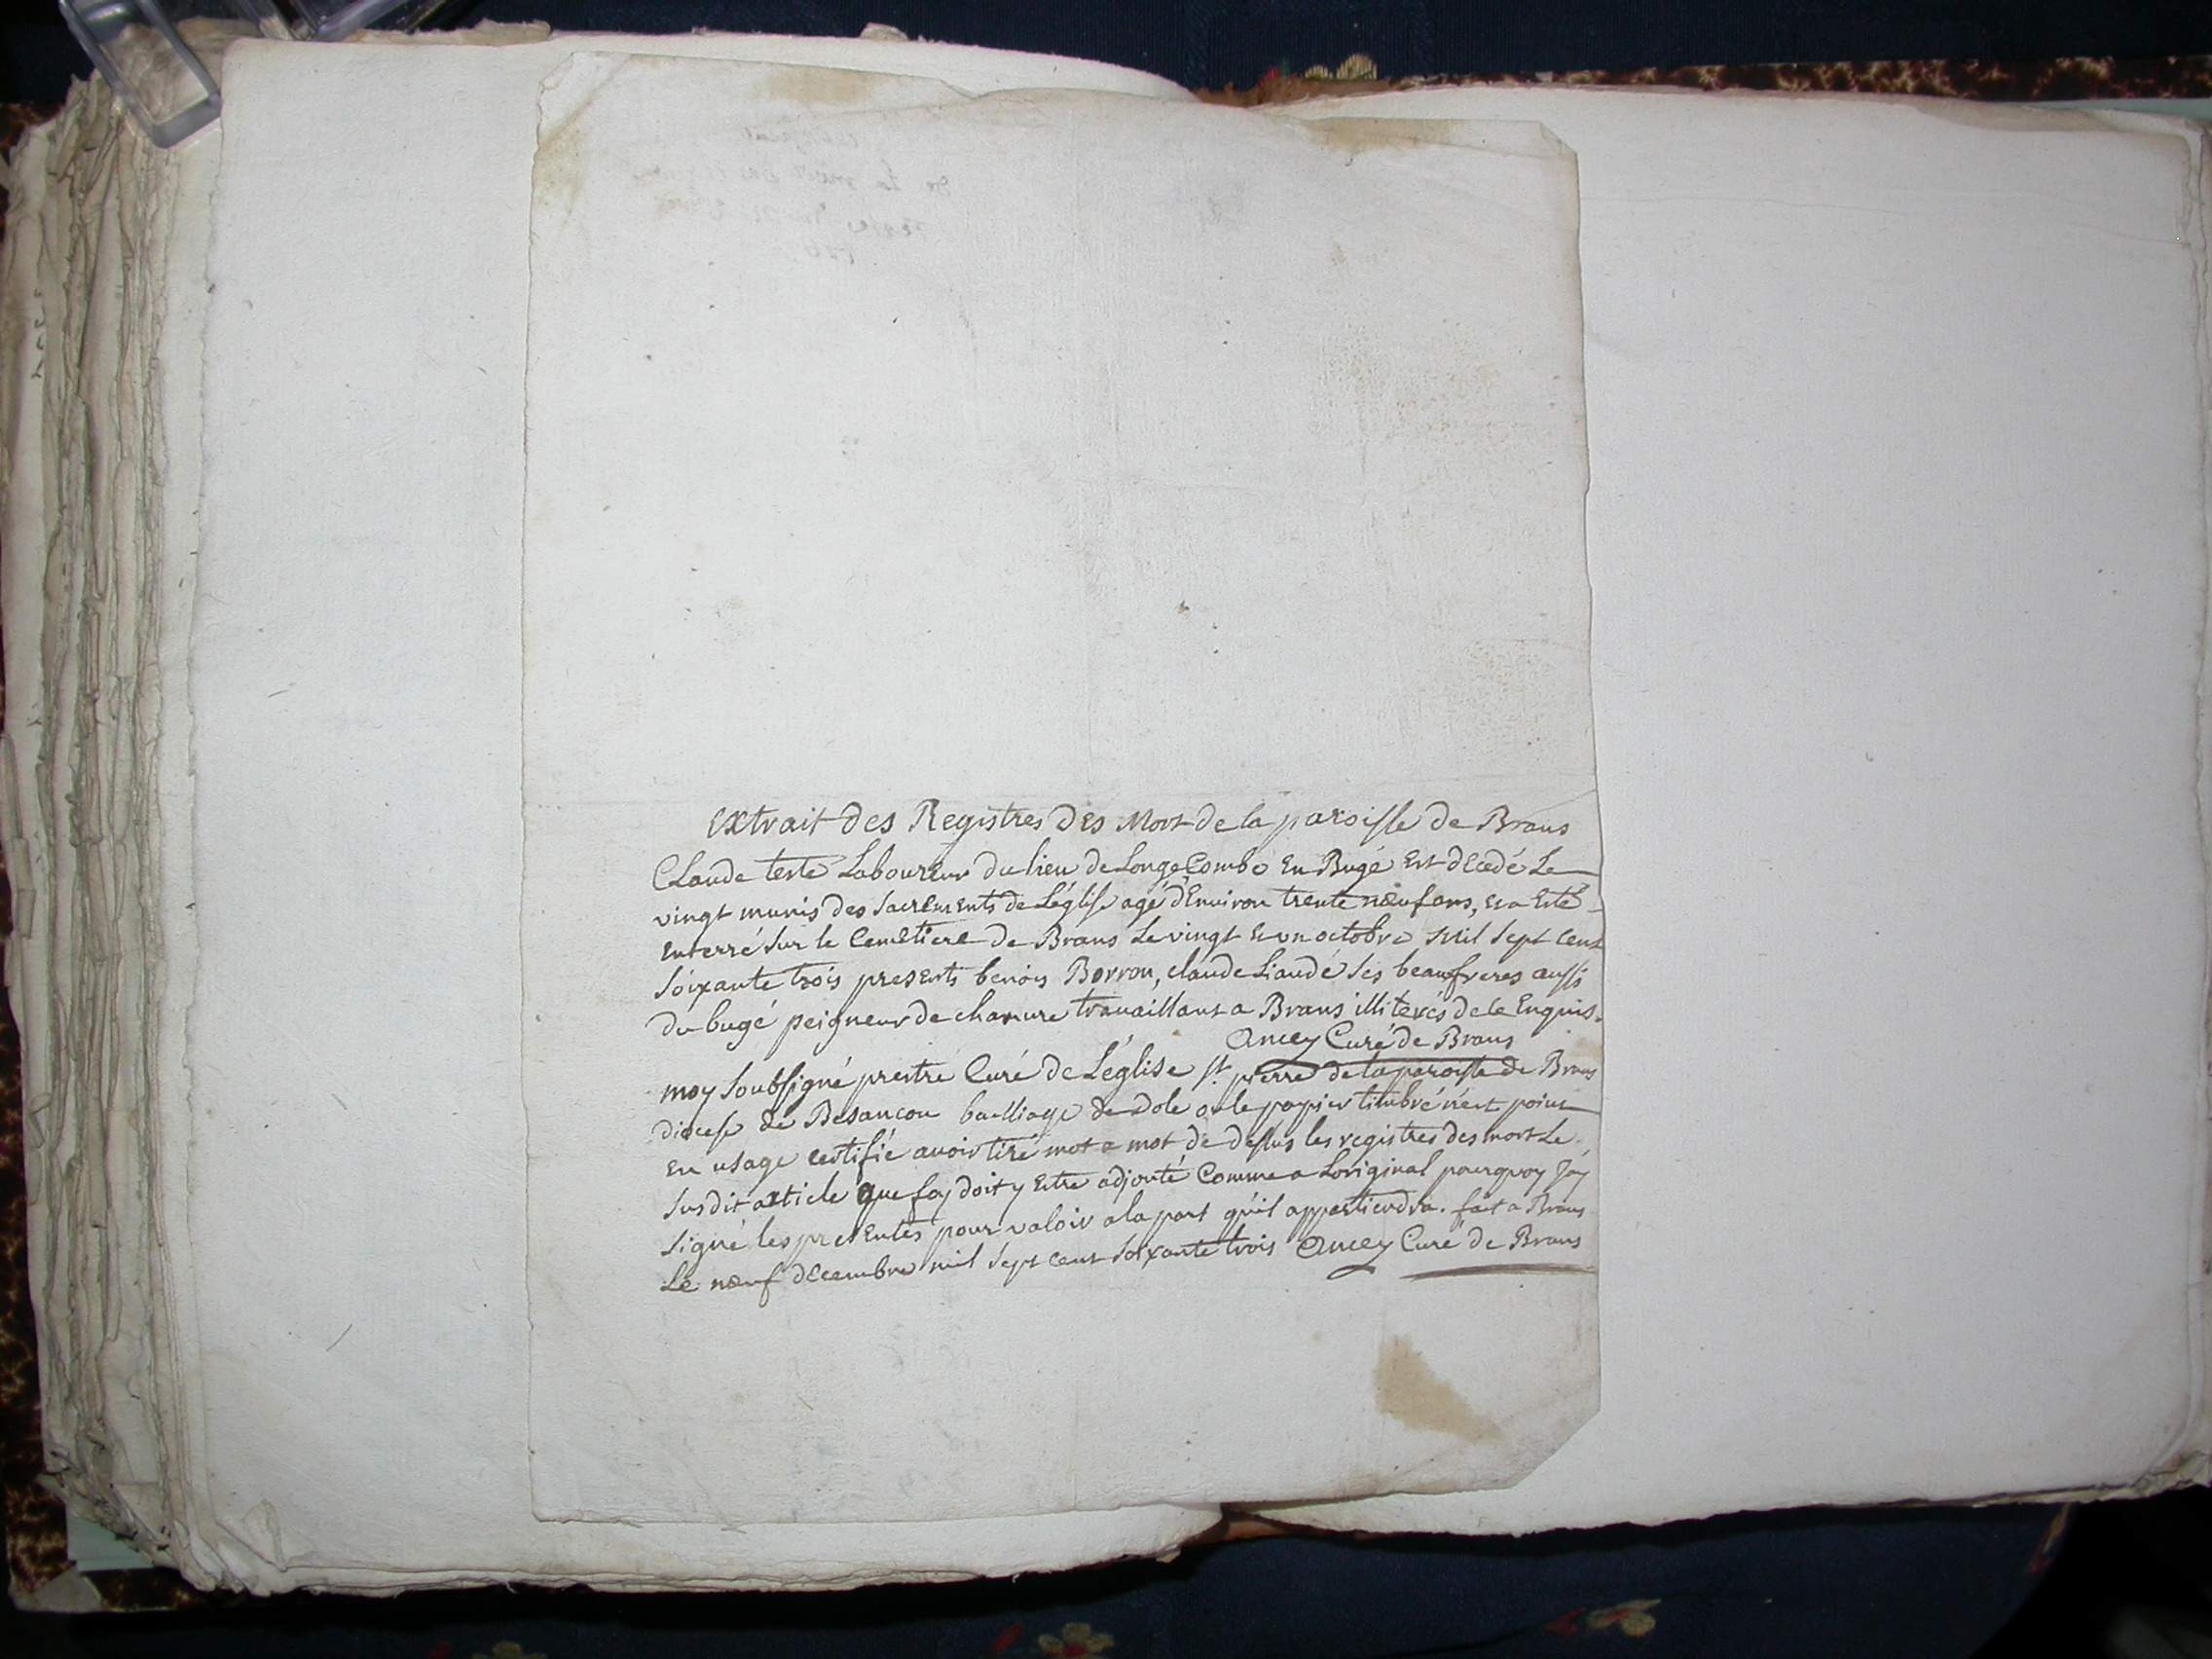 Extrait des Registres des Mort de la paroisse de Brans
Claude teste Laboureur du lieu de Longe Combe En Bugé Est decedé Le
vingt munis des Sacrements de Léglise agé d'Environ trente nœuf ans, et a Esté
Enterré Sur le Cemetiere de Brans Le vingt et un octobre Mil Sept Cent
Soixante trois presents benois Borron, claude Liaudé Ses beauxfreres aussi
du bugé peigneur de chanvre travaillant a Brans illiterés de ce Enquis.
Ancey Curé de Brans
moy Soubsigné prestre Curé de Léglise st. pierre de la paroisse de Brans
diocese de Besancon bailliage de Dole ou le papier timbré n'est point
En usage certifie avoir tiré mot a mot de dessus les registres des mort Le
Susdit article que foy doit y Estre adjouté Comme a Loriginal pourquoy J'ay
Signé les presentes pour valoir a la part qu'il appartiendra. fait a Brans
Le nœuf decembre mil Sept cent soixante trois Ancey Curé de Brans